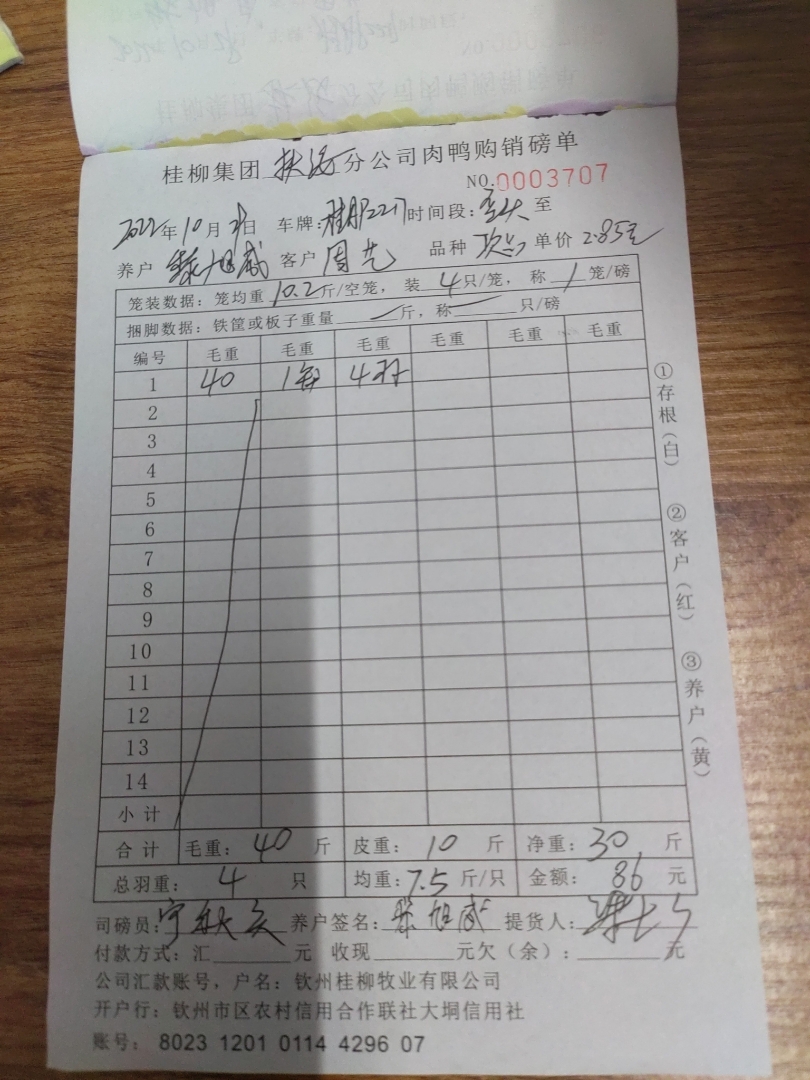 桂柳集团 分公司肉鸭购销磅单
NO.0003707
2022年10月 日 车牌: 时间段: 至
养户 旭威 客户 周艺 品种 单价 2.85元
笼装数据：笼均重 10.2 斤/空笼，装 4 只/笼，称 1 笼/磅
捆脚数据：铁筐或板子重量 斤，称 只/磅
编号 毛重 毛重 毛重 毛重 毛重 毛重
1 40 1每 4羽
2
3
4
5
6
7
8
9
10
11
12
13
14
小计
合计 毛重：40 斤 皮重：10 斤 净重：30 斤
总羽重：4 只 均重：7.5 斤/只 金额：86 元
司磅员： 养户签名： 旭威 提货人：
付款方式：汇 元 收现 元欠（余）： 元
公司汇款账号，户名：钦州桂柳牧业有限公司
开户行：钦州市区农村信用合作联社大垌信用社
账号：8023 1201 0114 4296 07
①存根（白）
②客户（红）
③养户（黄）